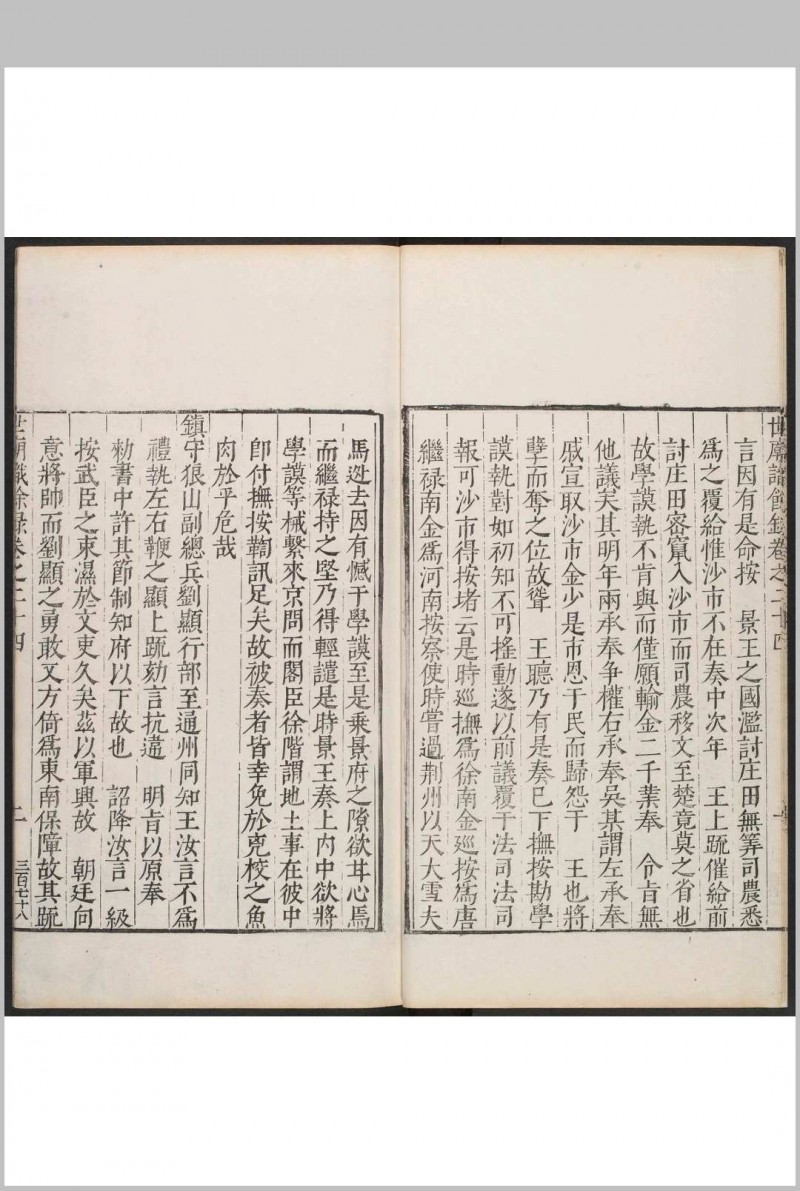 世廟識餘錄卷之二十四
言因有是命按　景王之國濫討庄田無筭司農悉
為之覆給惟沙市不在奏中次年　王上疏催給前
討庄田密竄入沙市而司農移文至楚竟莫之省也
故學謨執不肯與而僅願輸金二千業奉　令旨無
他議矣其明年兩承奉争權右承奉吳某謂左承奉
戚宣取沙市金少是市恩于民而歸怨于　王也將
孽而奪之位故聳　王聽乃有是奏已下撫按勘學
謨執對如初知不可搖動遂以前議覆于法司法司
報可沙市得按堵云是時廵撫爲徐南金廵按爲唐
繼禄南金爲河南按察使時嘗過荆州以天大雪夫
馬迯去因有憾于學謨至是乘景府之隙欲甘心焉
而繼禄持之堅乃得輕譴是時景王奏上内中欲將
學謨等械繫來京問而閣臣徐階謂地土事在彼中
卽付撫按鞫訊足矣故被奏者皆幸免於克校之魚
肉於乎危哉
鎮守狼山副總兵劉顯行部至通州同知王汝言不爲
禮執左右鞭之顯上疏劾言抗違　明旨以原奉
勑書中許其節制知府以下故也　詔降汝言一級
按武臣之束濕於文吏久矣茲以軍興故　朝廷向
意將帥而劉顯之勇敢又方倚爲東南保障故其疏
世廟識餘录卷之二十四
二
三百七十八